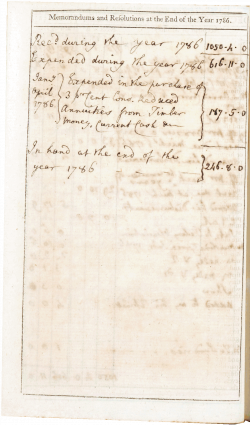 Memorandums and Resolutions at the End of the Year 1786.
Rec'd during the year 1786 1050.4.0
Expended during the year 1786 616.11.0
Jan'y Expended in the purchase of
April 3 pr Cent Cons. Reduced
1786 Annuities from Timber 187.5.0
money, Current Cash &c
In hand at the end of the
year 1786 246.8.0